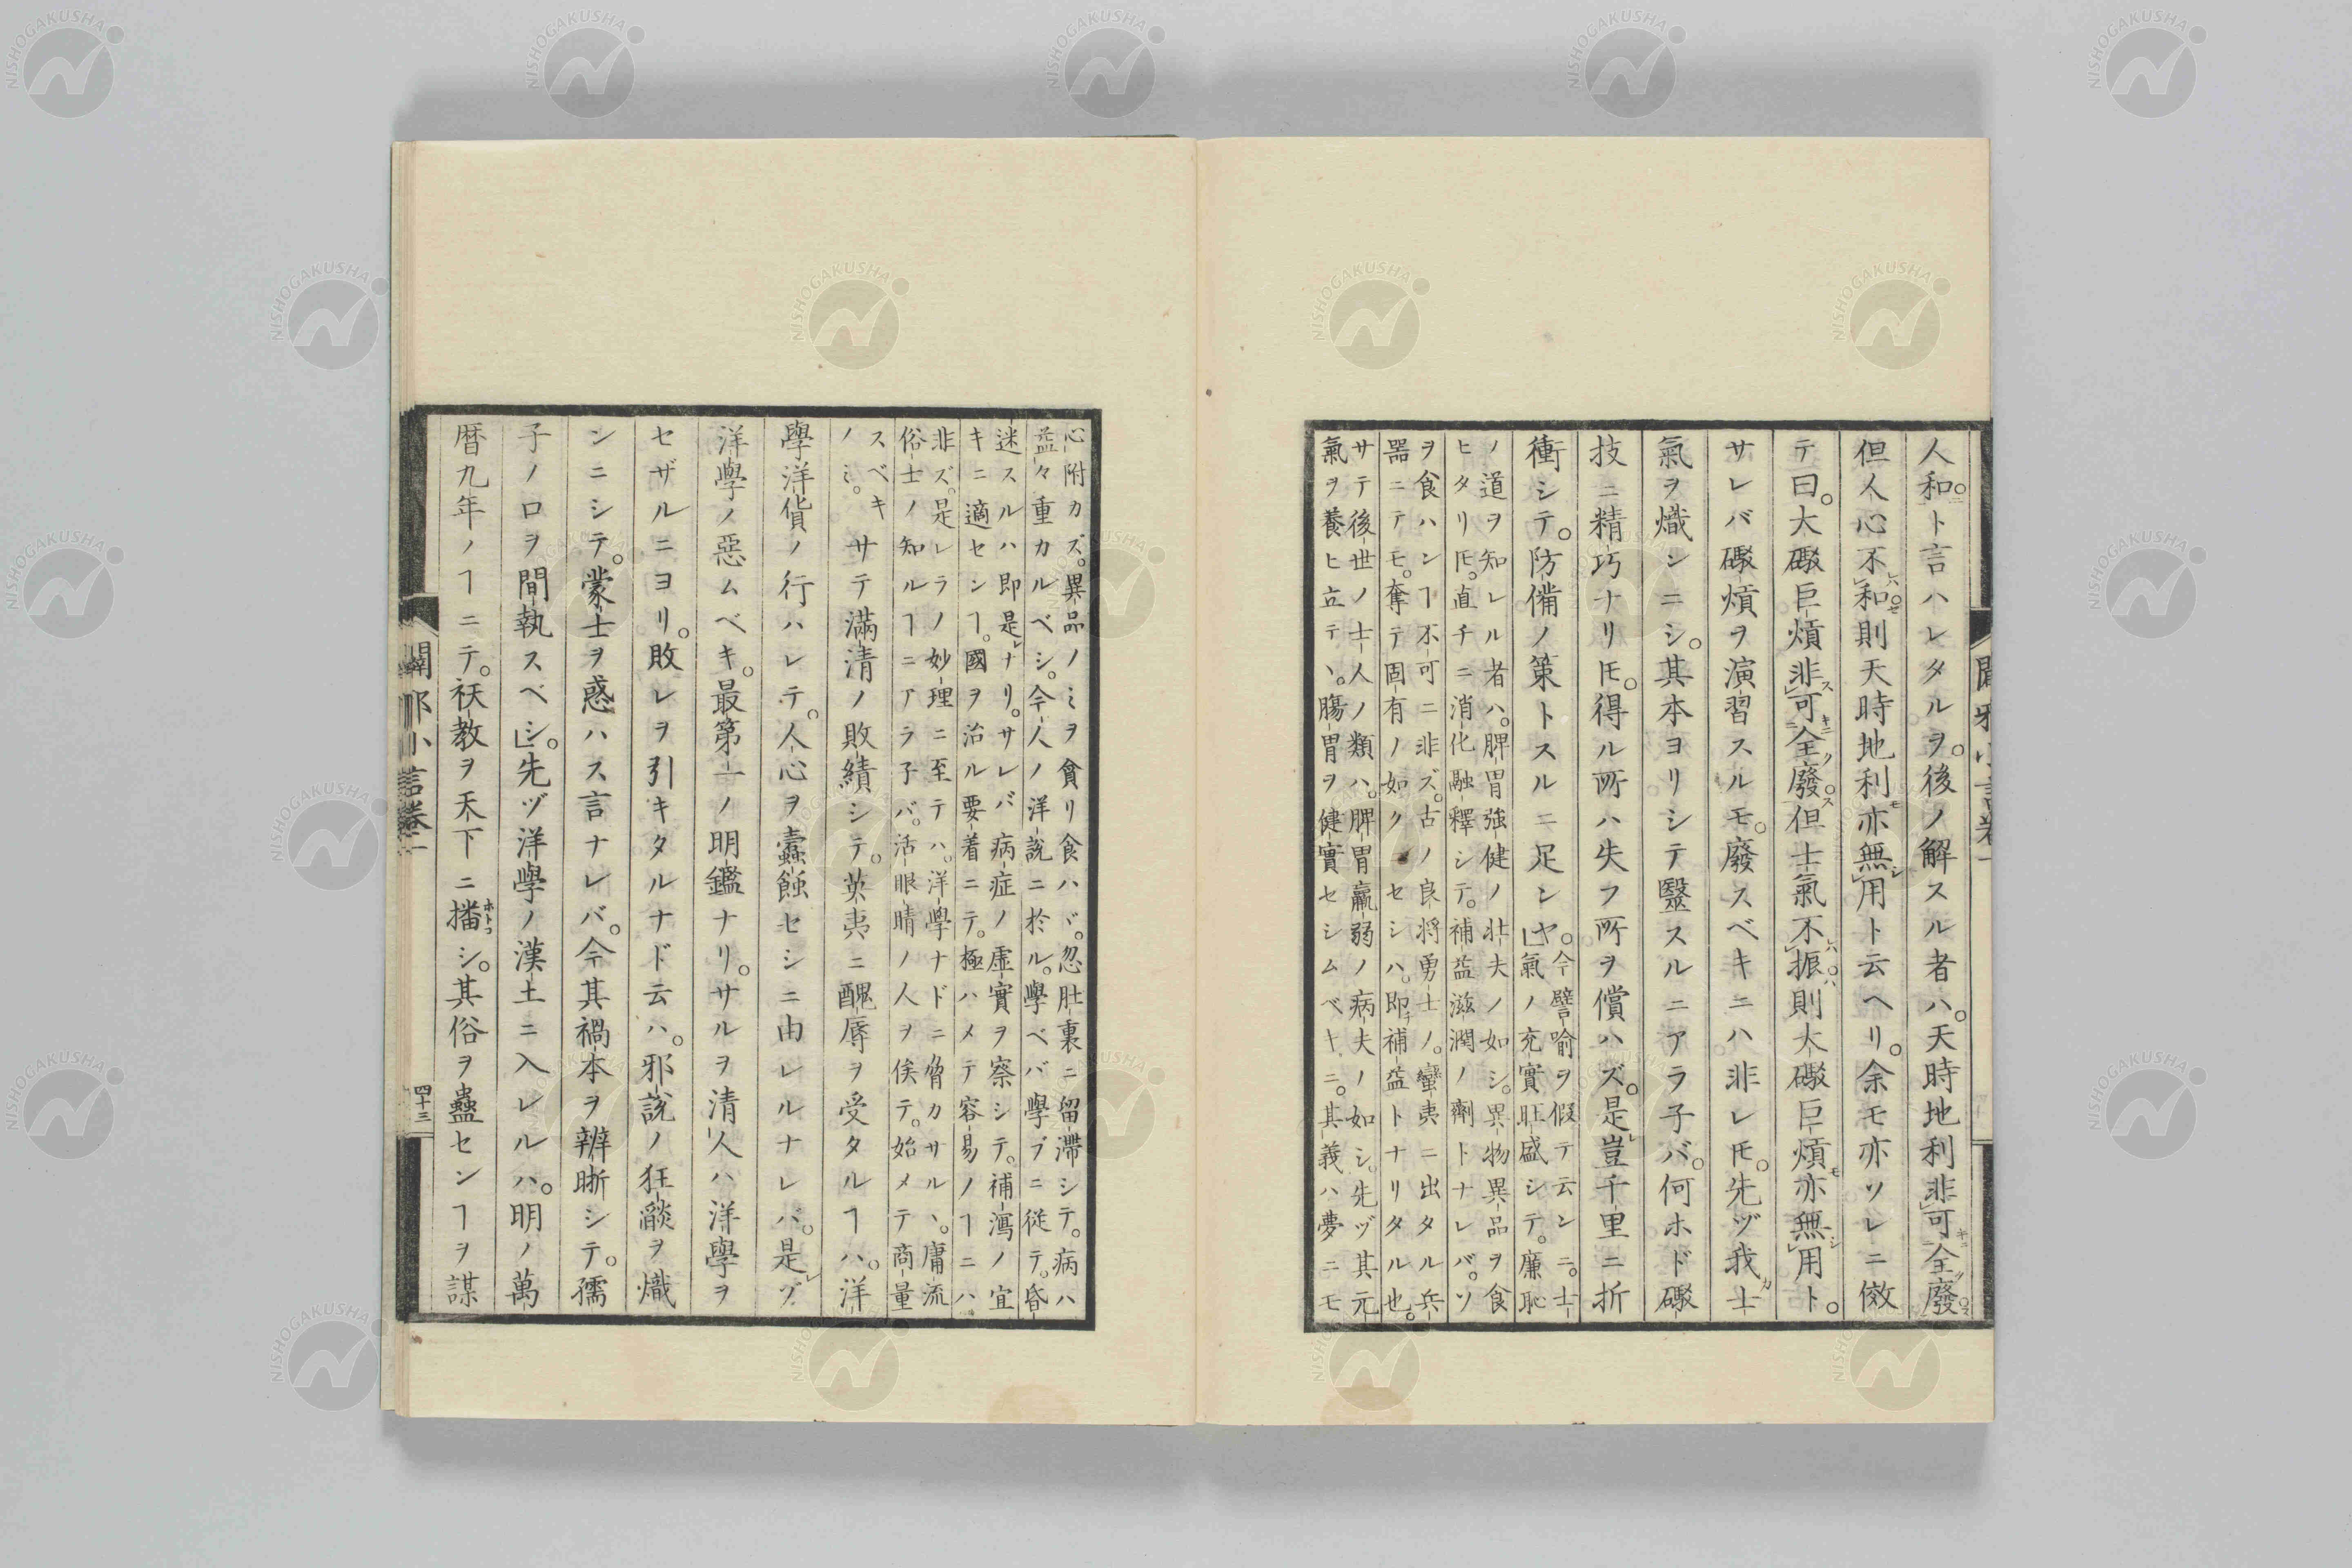 人和ト言ハレタルヲ。後ノ解スル者ハ。天時地利非可全廢
但人心不和則天時地利亦無用ト云ヘリ。余モ亦ソレニ傚
テ曰。大礮巨熕非可全廢但士氣不振則大礮巨熕亦無用ト。
サレバ礮熕ヲ演習スルモ。廢スベキニハ非レ𪜈。先ヅ我士
氣ヲ熾ンニシ。其本ヨリシテ毉スルニアラ子バ。何ホド礮
技ニ精巧ナリ𪜈。得ル所ハ失フ所ヲ償ハズ。是豈千里ニ折
衝シテ。防備ノ策トスルニ足ンヤ。
今譬喻ヲ假テ云ンニ。士
氣ノ充實旺盛シテ。廉恥
ノ道ヲ知レル者ハ。脾胃強健ノ壯夫ノ如シ。異物異品ヲ食
ヒタリ𪜈。直チニ消化融釋シテ。補益滋潤ノ劑トナレバ。ソ
ヲ食ハンヿ不可ニ非ズ。古ノ良将勇士ノ。蠻夷ニ出タル兵
器ニテモ。奪テ固有ノ如クセシハ。即補益トナリタル也。
サテ後世ノ士人ノ類ハ。脾胃羸弱ノ病夫ノ如シ。先ヅ其元
氣ヲ養ヒ立テヽ。腸胃ヲ健實セシムベキニ。其義ハ夢ニモ
闢邪小言卷一
心附カズ。異品ノミヲ貪リ食ハヾ。忽肚裏ニ留滯シテ。病ハ
益々重カルベシ。今人ノ洋説ニ於ル。學ベバ學ブニ従テ。昏
迷スルハ即是ナリ。サレバ病症ノ虛實ヲ察シテ。補瀉ノ宜
キニ適セシヿ。國ヲ治ル要着ニテ。極ハメテ容易ノヿニハ
非ズ。是レラノ妙理ニ至テハ。洋學ナドニ脅カサルヽ。庸流
俗士ノ知ルヿニアラ子バ。活眼晴ノ人ヲ俟テ。始メテ商量
スベキ
ノミ。
サテ滿清ノ敗績シテ。英夷ニ醜辱ヲ受タルヿハ。洋
學洋貨ノ行ハレテ。人心ヲ蠧蝕セシニ由レルナレバ。是ゾ
洋學ノ惡ムベキ。最第一ノ明鑑ナリ。サルヲ清人ハ洋學ヲ
セザルニヨリ。敗レヲ引キタルナド云ハ。邪説ノ狂燄ヲ熾
ンニシテ。蒙士ヲ惑ハス言ナレバ。今其禍本ヲ辨晰シテ。孺
子ノ口ヲ間執スベシ。先ヅ洋學ノ漢土ニ入レルハ。明ノ萬
暦九年ノヿニテ。祅教ヲ天下ニ播シ。其俗ヲ蠱センヿヲ謀
闢邪小言卷一
四十三
NISHOGAKUSHA